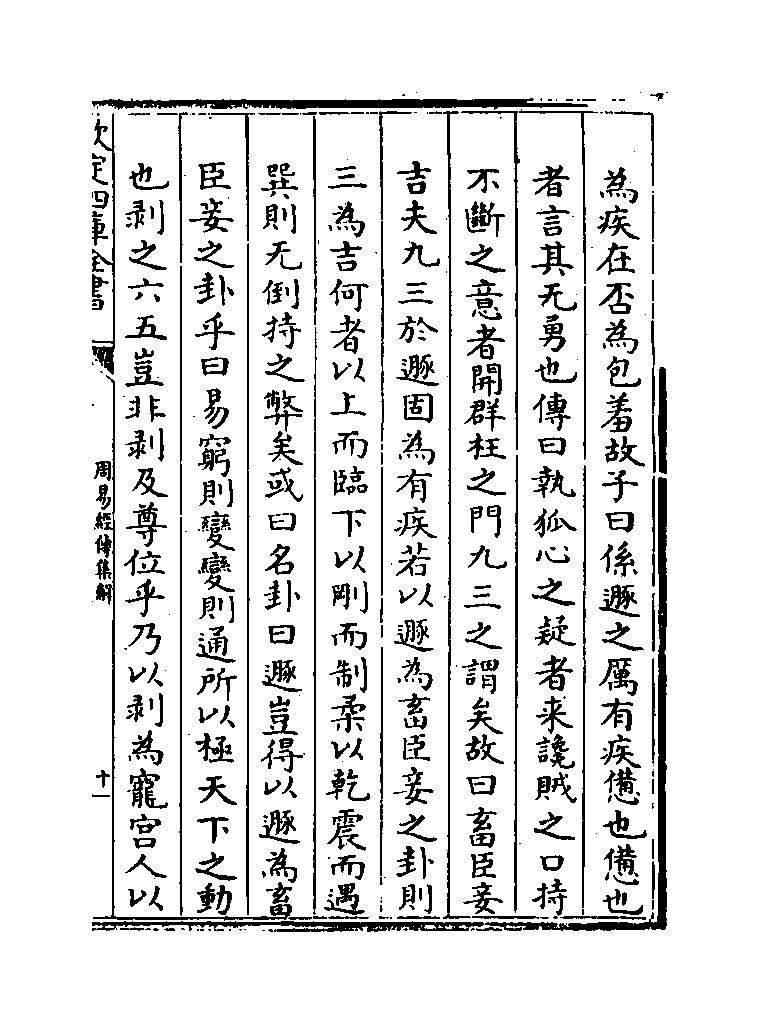 為疾在否為包羞故子曰係遯之厲有疾憊也憊也
者言其无勇也傳曰執狐心之疑者来讒賊之口持
不斷之意者開群枉之門九三之謂矣故曰畜臣妾
吉夫九三於遯固為有疾若以遯為畜臣妾之卦則
三為吉何者以上而臨下以剛而制柔以乾震而遇
巽則无倒持之弊矣或曰名卦曰遯豈得以遯為畜
臣妾之卦乎曰易窮則變變則通所以極天下之動
也剥之六五豈非剥及尊位乎乃以剥為寵宫人以
欽定四庫全書
周易經傳集解
十一